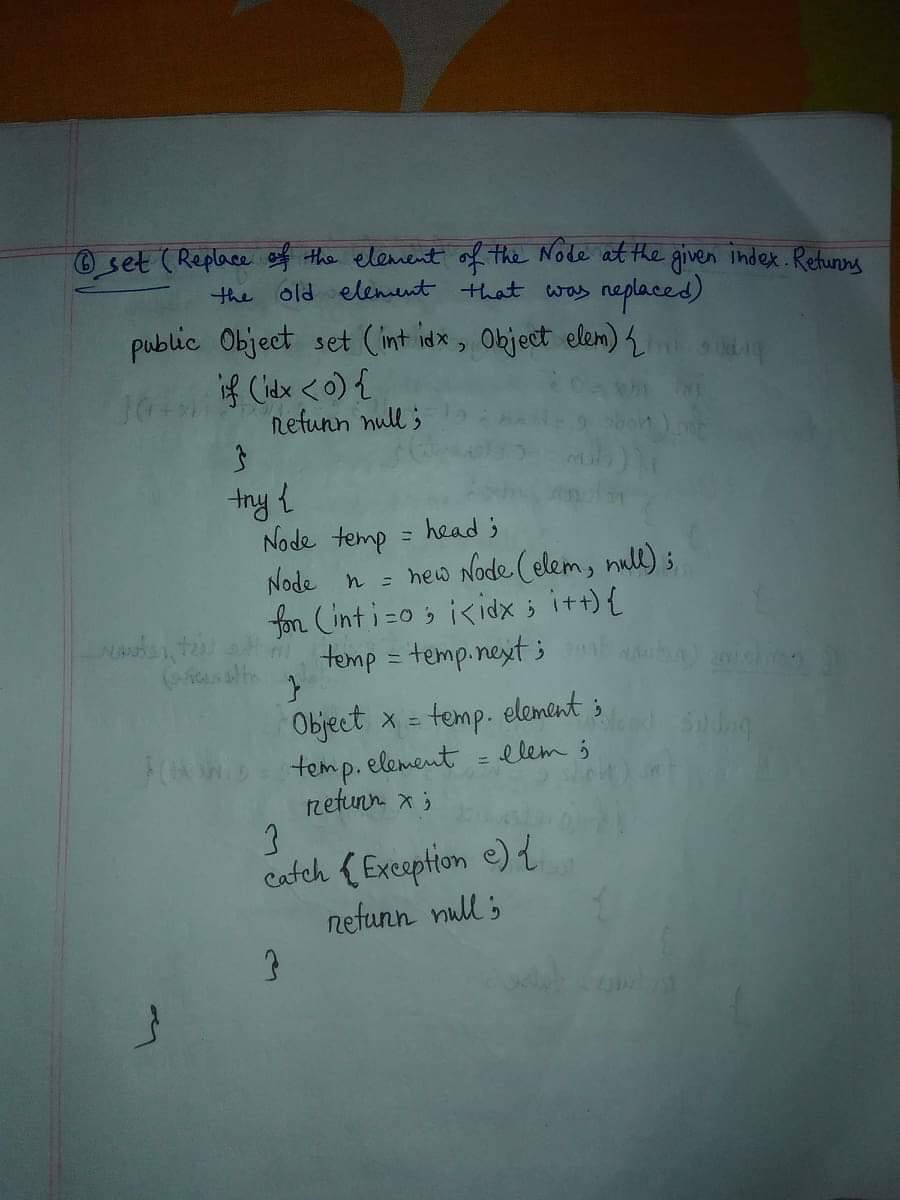 ⑥ set (Replace of the element of the Node at the given index. Returns
the old element that was replaced)
public Object set (int idx, Object elem) {
if (idx < 0) {
return null;
}
try {
Node temp = head;
Node n = new Node (elem, null);
for (int i = 0; i < idx; i++) {
temp = temp.next;
}
Object x = temp. element;
temp. element = elem;
return x;
}
catch { Exception e) {
return null;
}
}